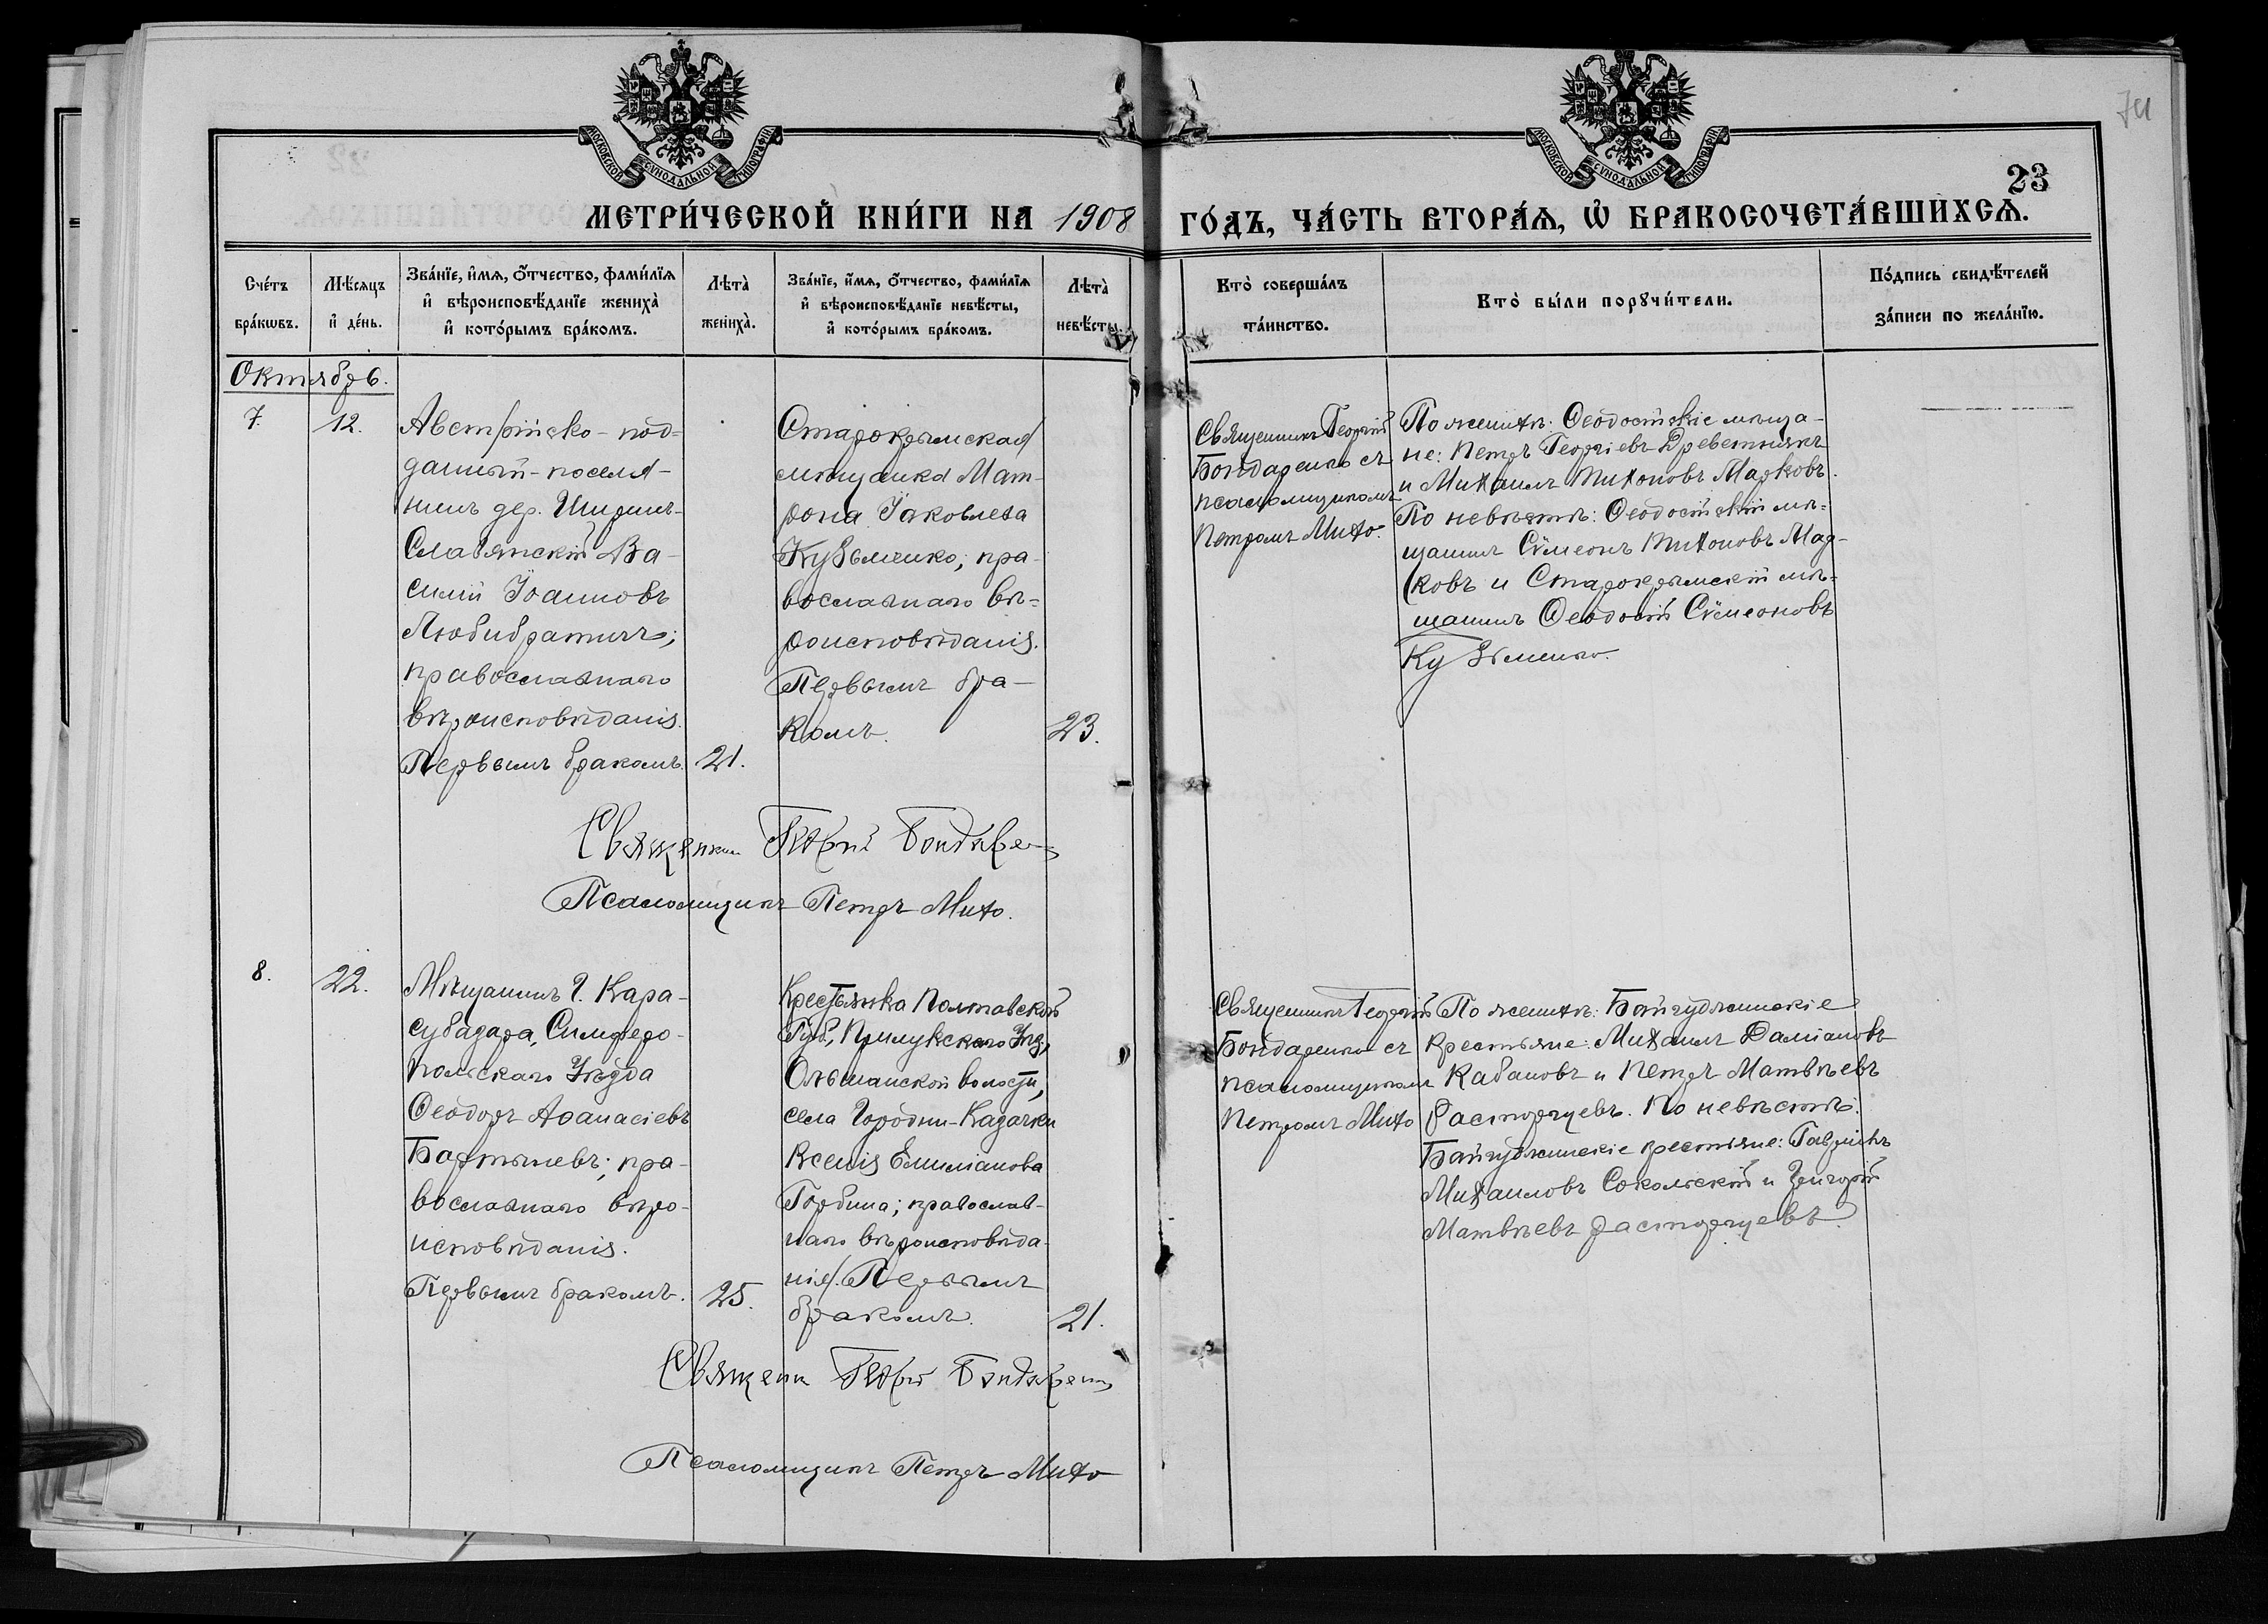 74
МОСКОВСКОЙ СѴНОДАЛЬНОЙ ТИПОГРАФІИ
МОСКОВСКОЙ СѴНОДАЛЬНОЙ ТИПОГРАФІИ
23
МЕТРИ́ЧЕСКОЙ КНИ́ГИ НА 1908 ГО́ДЪ, ЧА́СТЬ ВТОРА́Ѧ, Ѽ БРАКОСОЧЕТА́ВШИХСѦ.
Сче́тъ
бра́кѡвъ.
Мѣ́сяцъ
и҆ де́нь.
Зва́нїе, и҆́мѧ, ѻ҆́тчество, фами́лїѧ
и҆ вѣроисповѣ́данїе жениха̀
и҆ кото́рымъ бра́комъ.
Лѣта̀
жениха̀.
Зва́нїе, и҆́мѧ, ѻ҆́тчество, фами́лїѧ
и҆ вѣроисповѣ́данїе невѣ́сты,
и҆ кото́рымъ бра́комъ.
Лѣта̀
невѣ́сты.
Кто̀ соверша́лъ
та́инство.
Кто̀ бы́ли порꙋчи́тели.
По́дпись свидѣ́телей
за́писи по жела́нїю.
Октябрь.
7.
12.
Австрійско-под-
данный-поселя-
нинъ дер. Ширинъ-
Славянскій Ва-
силій Іоанновъ
Любибратичъ;
православнаго
вѣроисповѣданія.
Первымъ бракомъ.
21.
Старокрымская
мѣщанка Мат-
рона Іаковлева
Кузьменко; пра-
вославнаго вѣ-
роисповѣданія.
Первымъ бра-
комъ.
23.
Священникъ Георгій
Бондаренко съ
псаломщикомъ
Петромъ Михо.
По женихѣ: Ѳеодосійскіе мѣща-
не: Петръ Георгіевъ Древетнякъ
и Михаилъ Тихоновъ Марковъ.
По невѣстѣ: Ѳеодосійскій мѣ-
щанинъ Сѵмеонъ Тихоновъ Мар-
ковъ и Старокрымскій мѣ-
щанинъ Ѳеодосій Сѵмеоновъ
Кузьменко.
Священникъ Георгій Бондаренко
Псаломщикъ Петръ Михо.
8.
22.
Мѣщанинъ г. Кара-
субазара, Симферо-
польскаго Уѣзда
Ѳеодоръ Аѳанасіевъ
Бартышевъ; пра-
вославнаго вѣро-
исповѣданія.
Первымъ бракомъ.
25.
Крестьянка Полтавской
Губ., Прилукскаго Уѣз.,
Ольшанской волости,
села Городни-Казачки
Ксенія Емиліанова
Горбина; православ-
наго вѣроисповѣда-
нія. Первымъ
бракомъ.
21.
Священникъ Георгій
Бондаренко съ
псаломщикомъ
Петромъ Михо
По женихѣ: Байгуджинскіе
крестьяне: Михаилъ Даміановъ
Кабановъ и Петръ Матвѣевъ
Расторгуевъ. По невѣстѣ:
Байгуджинскіе крестьяне: Гавріилъ
Михаиловъ Сокольскій и Григорій
Матвѣевъ Расторгуевъ.
Священникъ Георгій Бондаренко
Псаломщикъ Петръ Михо